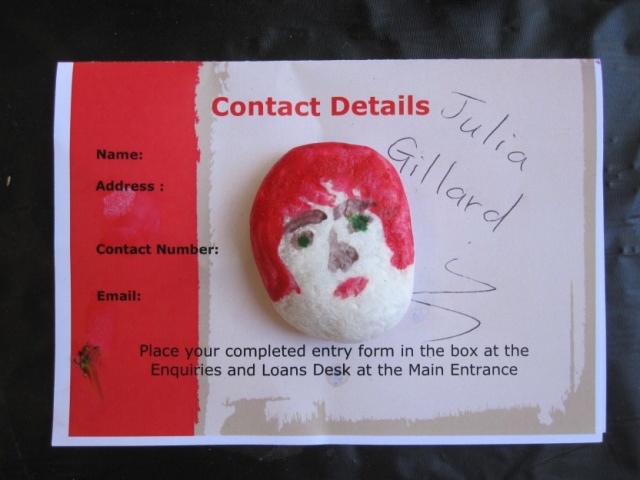 Contact Details
Julia
Gillard
Name:
Address :
Contact Number:
Email:
Place your completed entry form in the box at the
Enquiries and Loans Desk at the Main Entrance